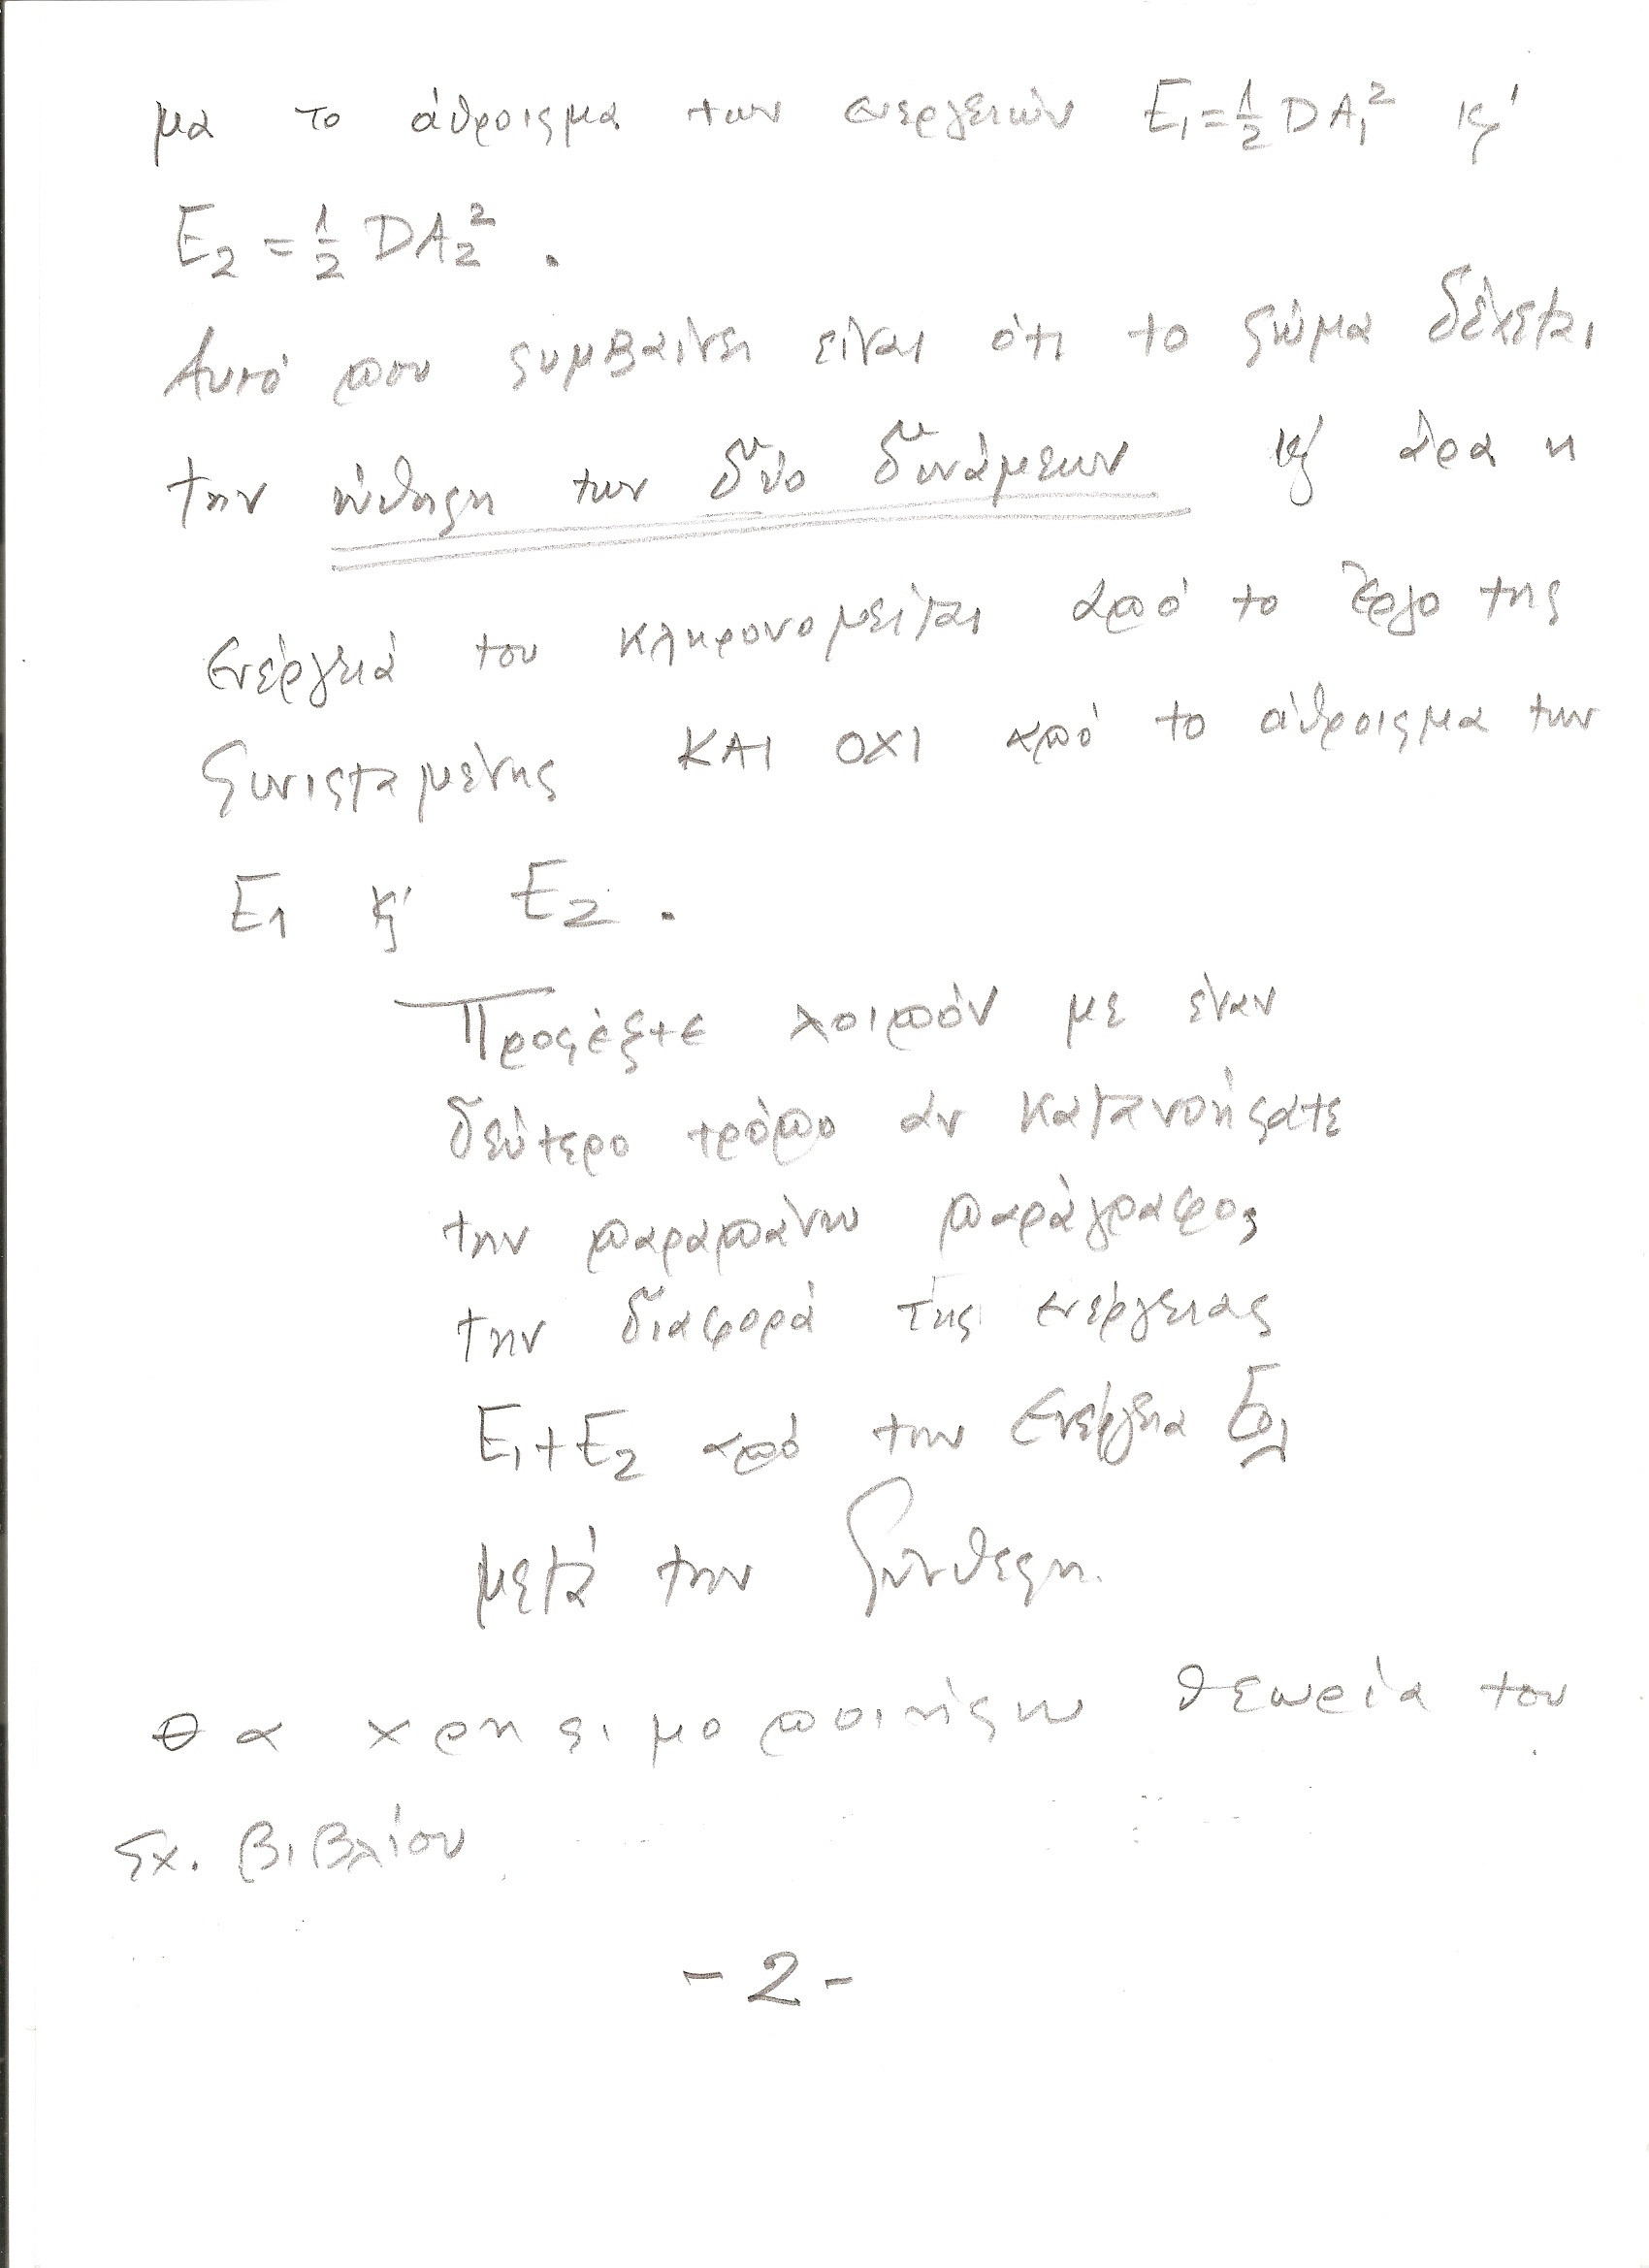 μα το άθροισμα των ενεργειών E₁=½DA₁² κ'
E₂=½DA₂².
Αυτό που συμβαίνει είναι ότι το σώμα δέχεται
την ώθηση των δύο δυνάμεων κ' άρα η
ενέργειά του κληρονομείται από το έργο της
συνισταμένης ΚΑΙ ΟΧΙ από το άθροισμα των
E₁ κ' E₂.
Προσέξτε λοιπόν με έναν
δεύτερο τρόπο αν κατανοήσατε
την παραπάνω παράγραφο,
την διαφορά της ενέργειας
E₁+E₂ από την ενέργεια Εολ
μετά την σύνθεση.
Θα χρησιμοποιήσω θεωρία του
σχ. βιβλίου
-2-